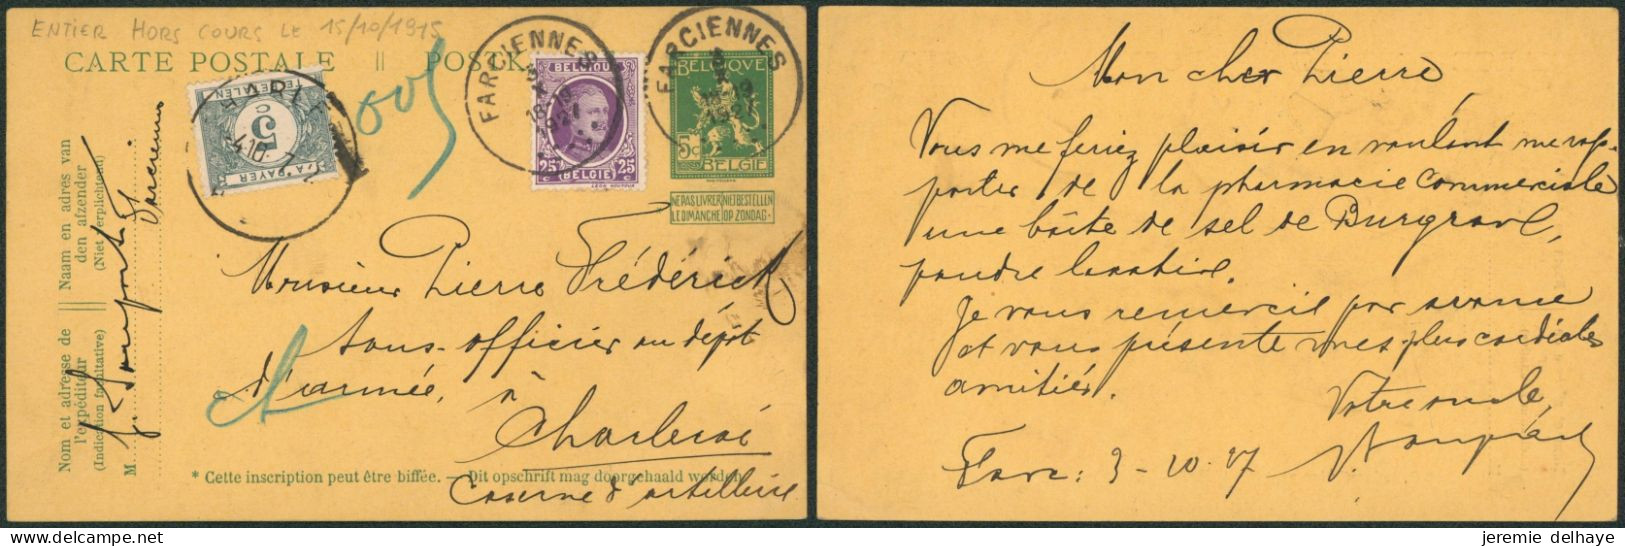 ENTIER HORS COURS LE 15/10/1915
CARTE POSTALE || POSTK
Naam en adres van
den afzender
(Niet verplichtend)
Nom et adresse de
l'expéditeur
(Indication facultative)
M
Farciennes
5
TE BETALEN
A PAYER
c
005
FARCIENNES
18-19
1927
BELGIQUE
25 25
c BELGIE c
FARCIENNES
18-19
1927
BELGIQUE
5c
BELGIË
NE PAS LIVRER NIET BESTELLEN
LE DIMANCHE OP ZONDAG.
Monsieur Pierre Frédérick
Sous-officier au dépôt
d'armée, à
Charleroi
Caserne d'artillerie
* Cette inscription peut être biffée. — Dit opschrift mag doorgehaald worden.
Mon cher Pierre
Vous me feriez plaisir en voulant me rap-
porter de la pharmacie Commerciale
une boîte de sel de Burgrave,
poudre laxative.
Je vous remercie par avance
et vous présente mes plus cordiales
amitiés.
Votre oncle,
Farc: 3-10.27
jeremie delhaye